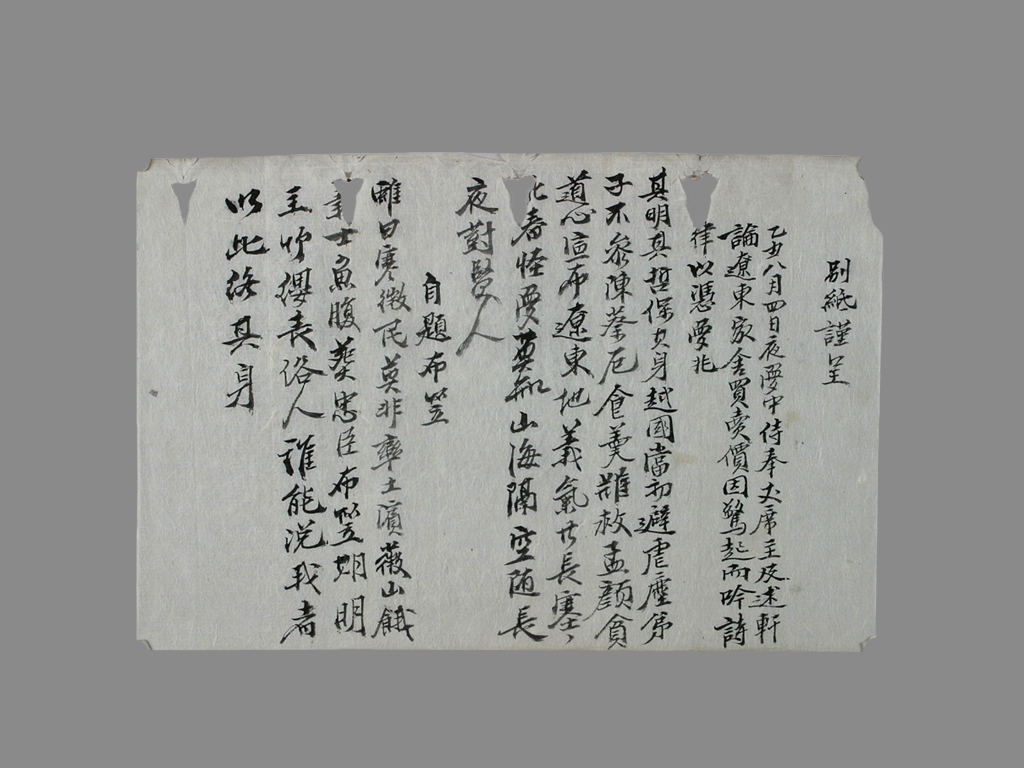 別紙謹呈
乙丑八月四日夜夢中侍奉丈席主及述軒
論遼東家舍買賣價因驚起而吟詩
律以憑夢兆
其明其哲保其身越國當初避虐塵弟
子不參陳蔡厄食羹難救孟顏貧
道心宣布遼東地義氣長塞
春怪夢莫知山海隔空随長
夜對賢人
自題布笠
雖曰寒微民莫非率土濱薇山餓
士魚腹葬忠臣布笠明
主纓喪俗人誰能說我者
以此終其身